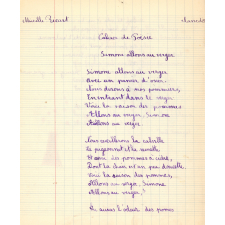 Cahier de Poésie
Simone allons au verger
Simone allons au verger
Avec un panier d'osier
Nous dirons à nos pommiers,
En entrant dans le verger
Voici la saison des pommes
Allons au verger, Simone
Allons au verger
Nous cueillerons la calville
Le pigeonnet et
des pommes à cidre,
Dont la chair est un peu
Voici la saison des pommes,
Allons au verger, Simone
Allons au verger.
l'odeur des pommes